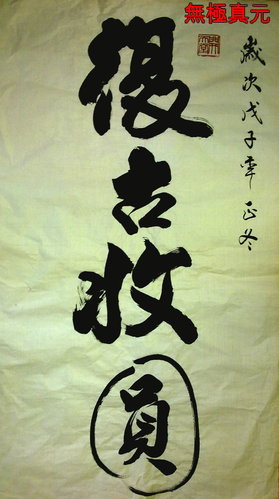 無極真元
歲次戊子年正冬
復古收圓